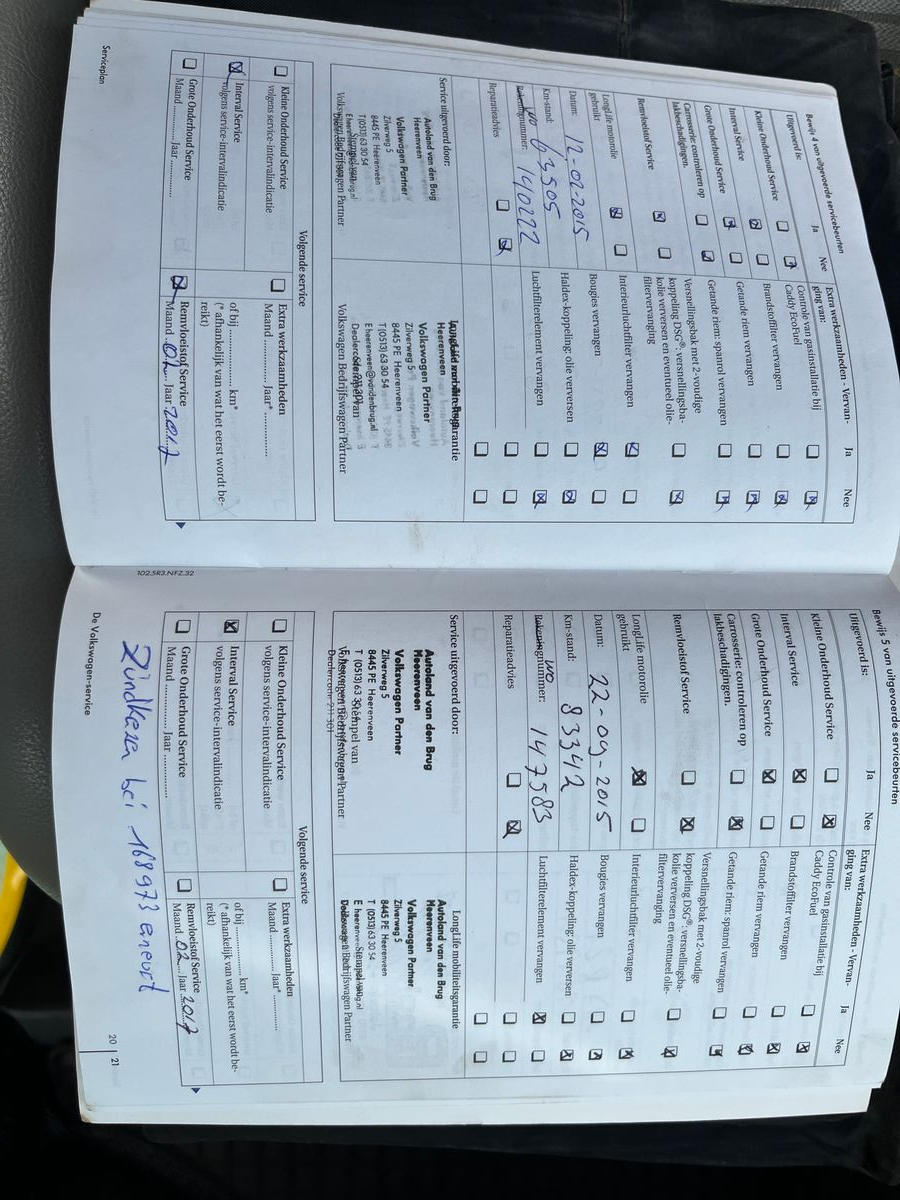 Bewijs 4 van uitgevoerde servicebeurten
Uitgevoerd is:
Ja
Nee
Kleine Onderhoud Service
Interval Service
Grote Onderhoud Service
Carrosserie: controleren op
lakbeschadigingen.
Remvloeistof Service
LongLife motorolie
gebruikt
Datum: 12-02-2015
Km-stand: 63505
Rekeningnummer: WO 140222
Reparatieadvies
Extra werkzaamheden - Vervan-
ging van:
Ja
Nee
Controle van gasinstallatie bij
Caddy EcoFuel
Brandstoffilter vervangen
Getande riem vervangen
Getande riem: spanrol vervangen
Versnellingsbak met 2-voudige
koppeling DSG®: versnellingsba-
kolie verversen en eventueel olie-
filtervervanging
Interieurluchtfilter vervangen
Bougies vervangen
Haldex-koppeling: olie verversen
Luchtfilterelement vervangen
Service uitgevoerd door:
Autoland van den Brug
Heerenveen
Volkswagen Partner
Zilverweg 5
8445 PE Heerenveen
T (0513) 63 30 54
Stempel van
Volkswagen Bedrijfswagen Partner
LongLife mobiliteitsgarantie
Heerenveen
Volkswagen Partner
Zilverweg 5
8445 PE Heerenveen
T (0513) 63 30 54
E heerenveen@vandenbrug.nl
Stempel van
Volkswagen Bedrijfswagen Partner
Volgende service
Kleine Onderhoud Service
volgens service-intervalindicatie
Interval Service
volgens service-intervalindicatie
Grote Onderhoud Service
Maand ............ Jaar ............
Extra werkzaamheden
Maand ............ Jaar* ............
of bij .................... km*
(* afhankelijk van wat het eerst wordt be-
reikt)
Remvloeistof Service
Maand 02 Jaar 2017
Serviceplan
Bewijs 5 van uitgevoerde servicebeurten
Uitgevoerd is:
Ja
Nee
Kleine Onderhoud Service
Interval Service
Grote Onderhoud Service
Carrosserie: controleren op
lakbeschadigingen.
Remvloeistof Service
LongLife motorolie
gebruikt
Datum: 22-09-2015
Km-stand: 83342
Rekeningnummer: WO 147583
Reparatieadvies
Extra werkzaamheden - Vervan-
ging van:
Ja
Nee
Controle van gasinstallatie bij
Caddy EcoFuel
Brandstoffilter vervangen
Getande riem vervangen
Getande riem: spanrol vervangen
Versnellingsbak met 2-voudige
koppeling DSG®: versnellingsba-
kolie verversen en eventueel olie-
filtervervanging
Interieurluchtfilter vervangen
Bougies vervangen
Haldex-koppeling: olie verversen
Luchtfilterelement vervangen
Service uitgevoerd door:
Autoland van den Brug
Heerenveen
Volkswagen Partner
Zilverweg 5
8445 PE Heerenveen
T (0513) 63 30 54
Stempel van
Volkswagen Bedrijfswagen Partner
LongLife mobiliteitsgarantie
Autoland van den Brug
Heerenveen
Volkswagen Partner
Zilverweg 5
8445 PE Heerenveen
T (0513) 63 30 54
Stempel van
Bedrijfswagen Partner
Volgende service
Kleine Onderhoud Service
volgens service-intervalindicatie
Interval Service
volgens service-intervalindicatie
Grote Onderhoud Service
Maand ............ Jaar ............
Extra werkzaamheden
Maand ............ Jaar* ............
of bij .................... km*
(* afhankelijk van wat het eerst wordt be-
reikt)
Remvloeistof Service
Maand 02 Jaar 2017
Zündkerzen bei 168973 erneuert
102.5R3.NFZ.32
De Volkswagen-service
20 | 21